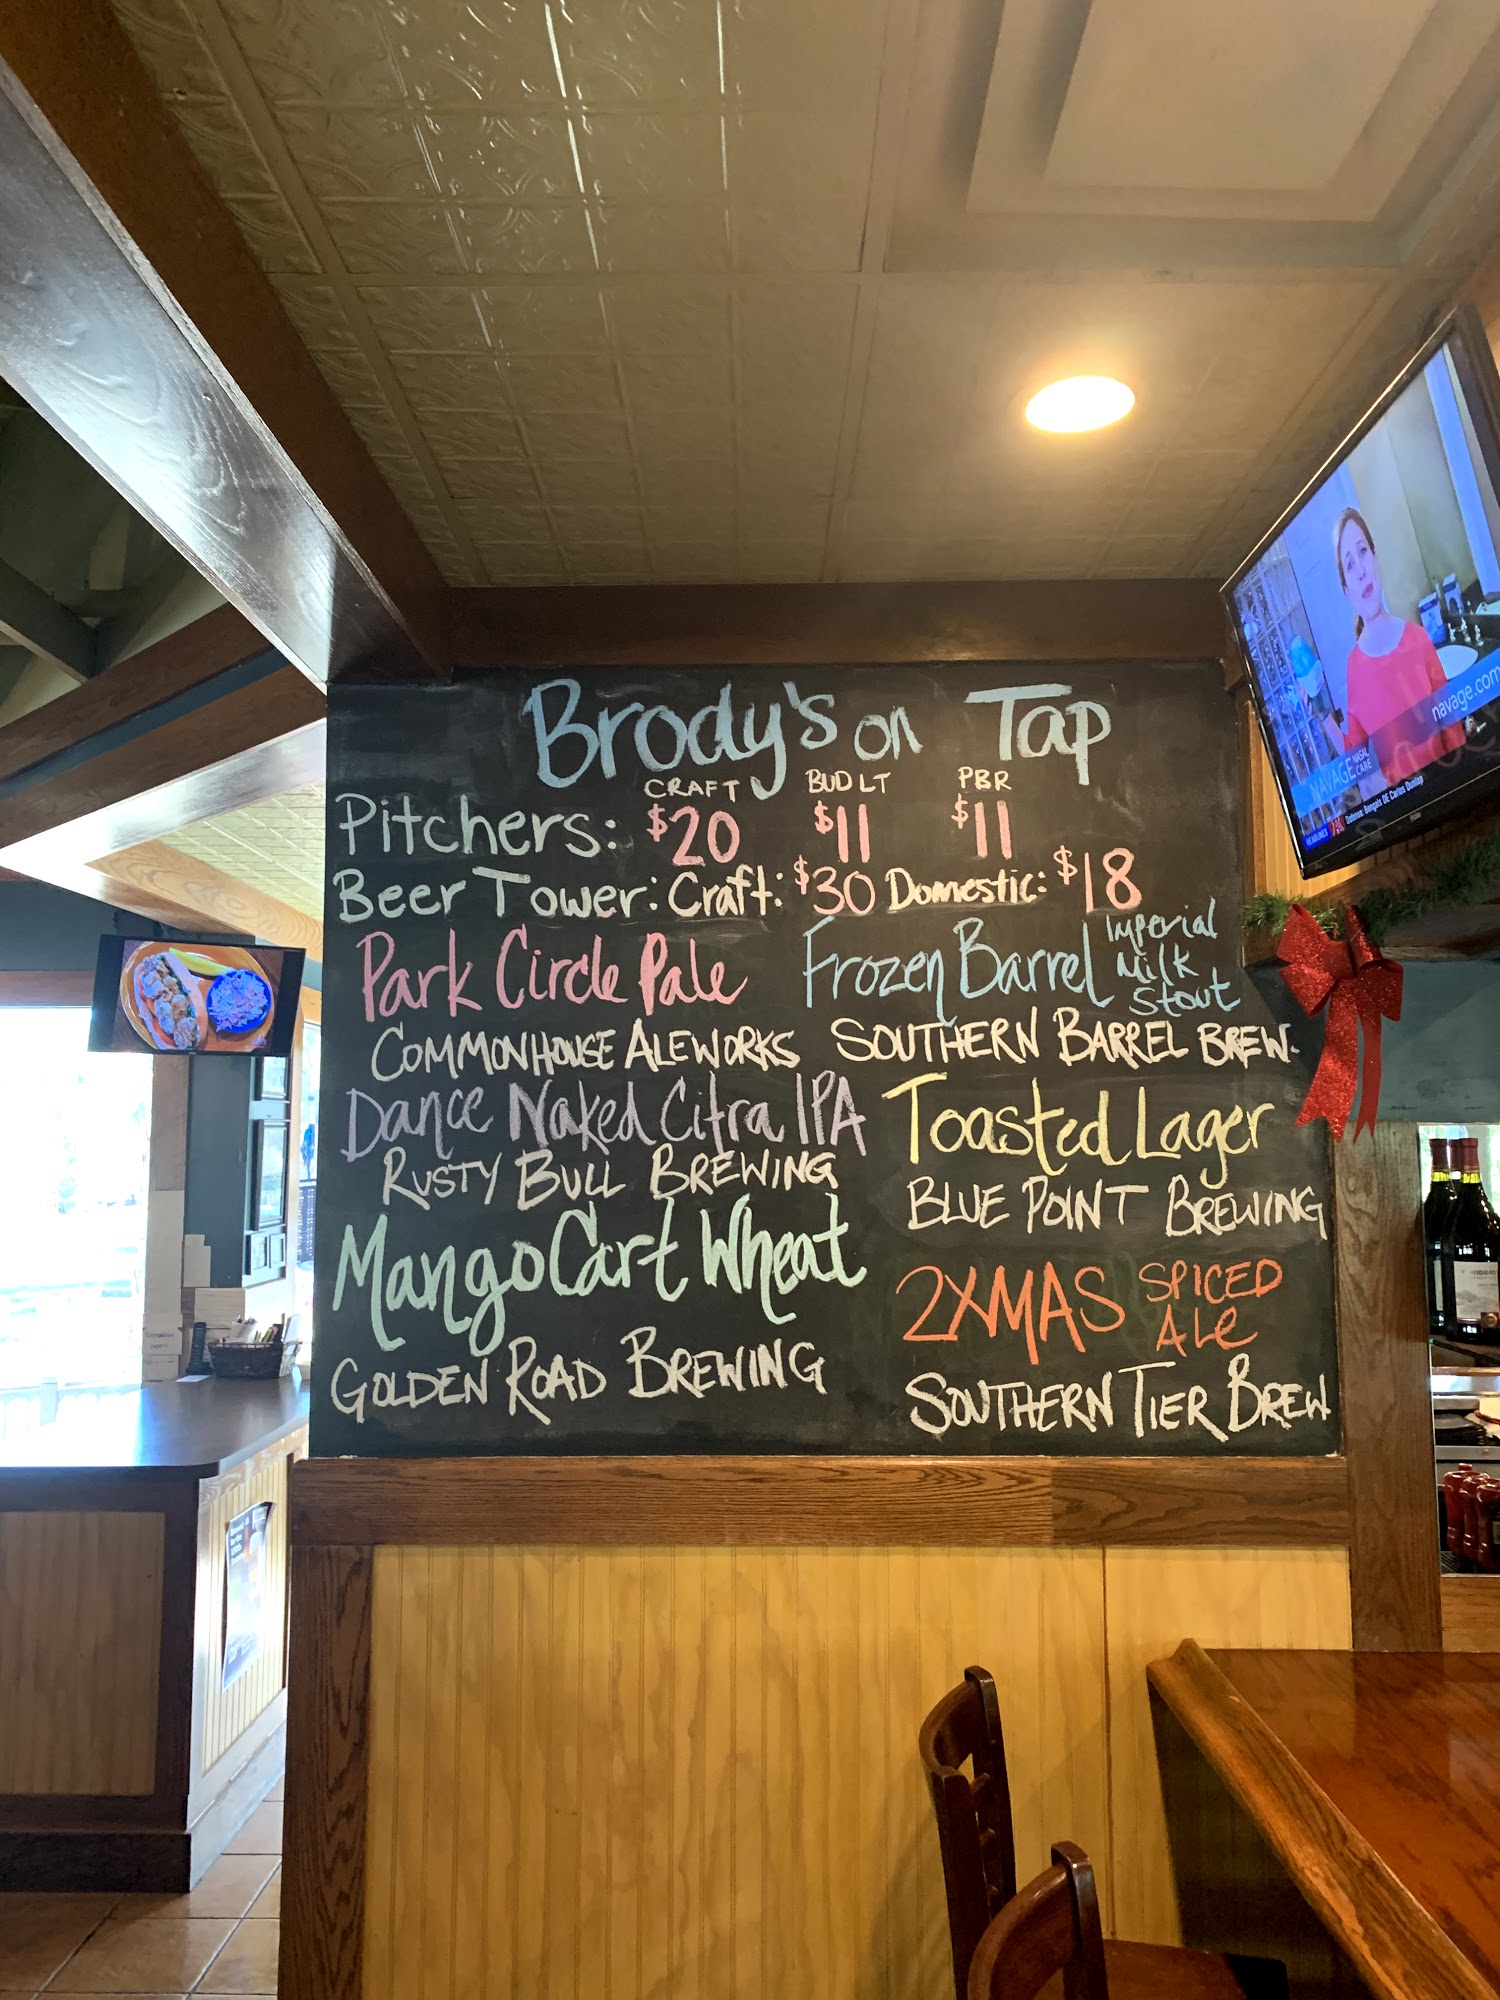 Brody's on Tap
CRAFT BUD LT PBR
Pitchers: $20 $11 $11
Beer Tower: Craft: $30 Domestic: $18
Park Circle Pale
COMMONHOUSE ALEWORKS
Dance Naked Citra IPA
RUSTY BULL BREWING
Mango Cart Wheat
GOLDEN ROAD BREWING
Frozen Barrel Imperial
Milk
Stout
SOUTHERN BARREL BREW.
Toasted Lager
BLUE POINT BREWING
2XMAS SPICED
ALe
SOUTHERN TIER BREW.
navage.com
NAVAGE NASAL
CARE
HEADLINES Defense: Bengals DE Carlos Dunlap